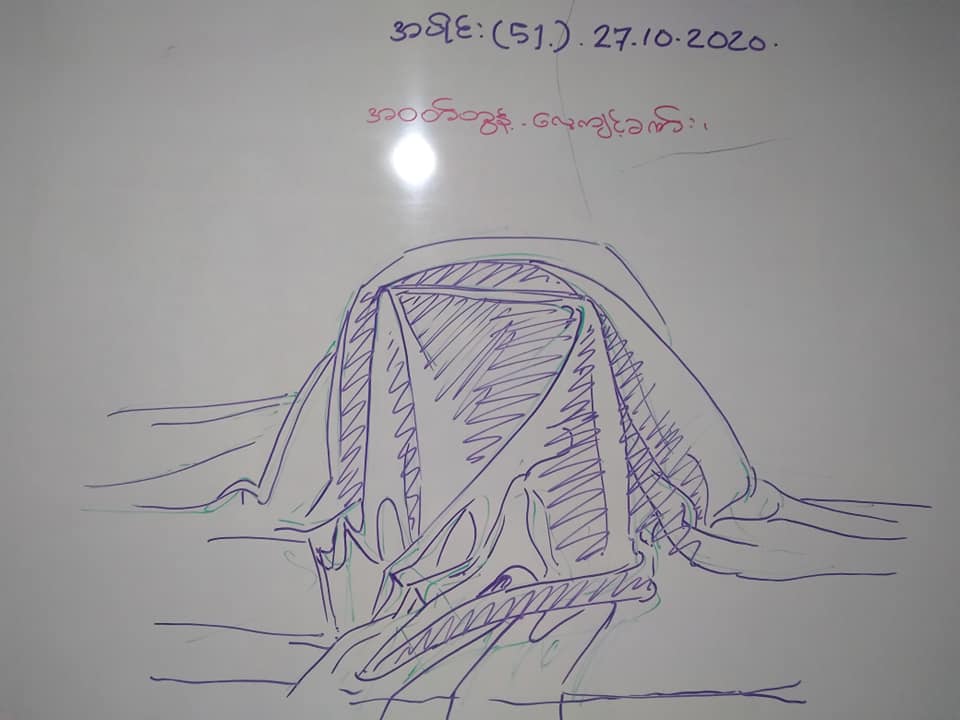 အပိုင်း (51.) . 27.10.2020.
အဝတ်တွန့် . လေ့ကျင့်ခဏ်း ၊